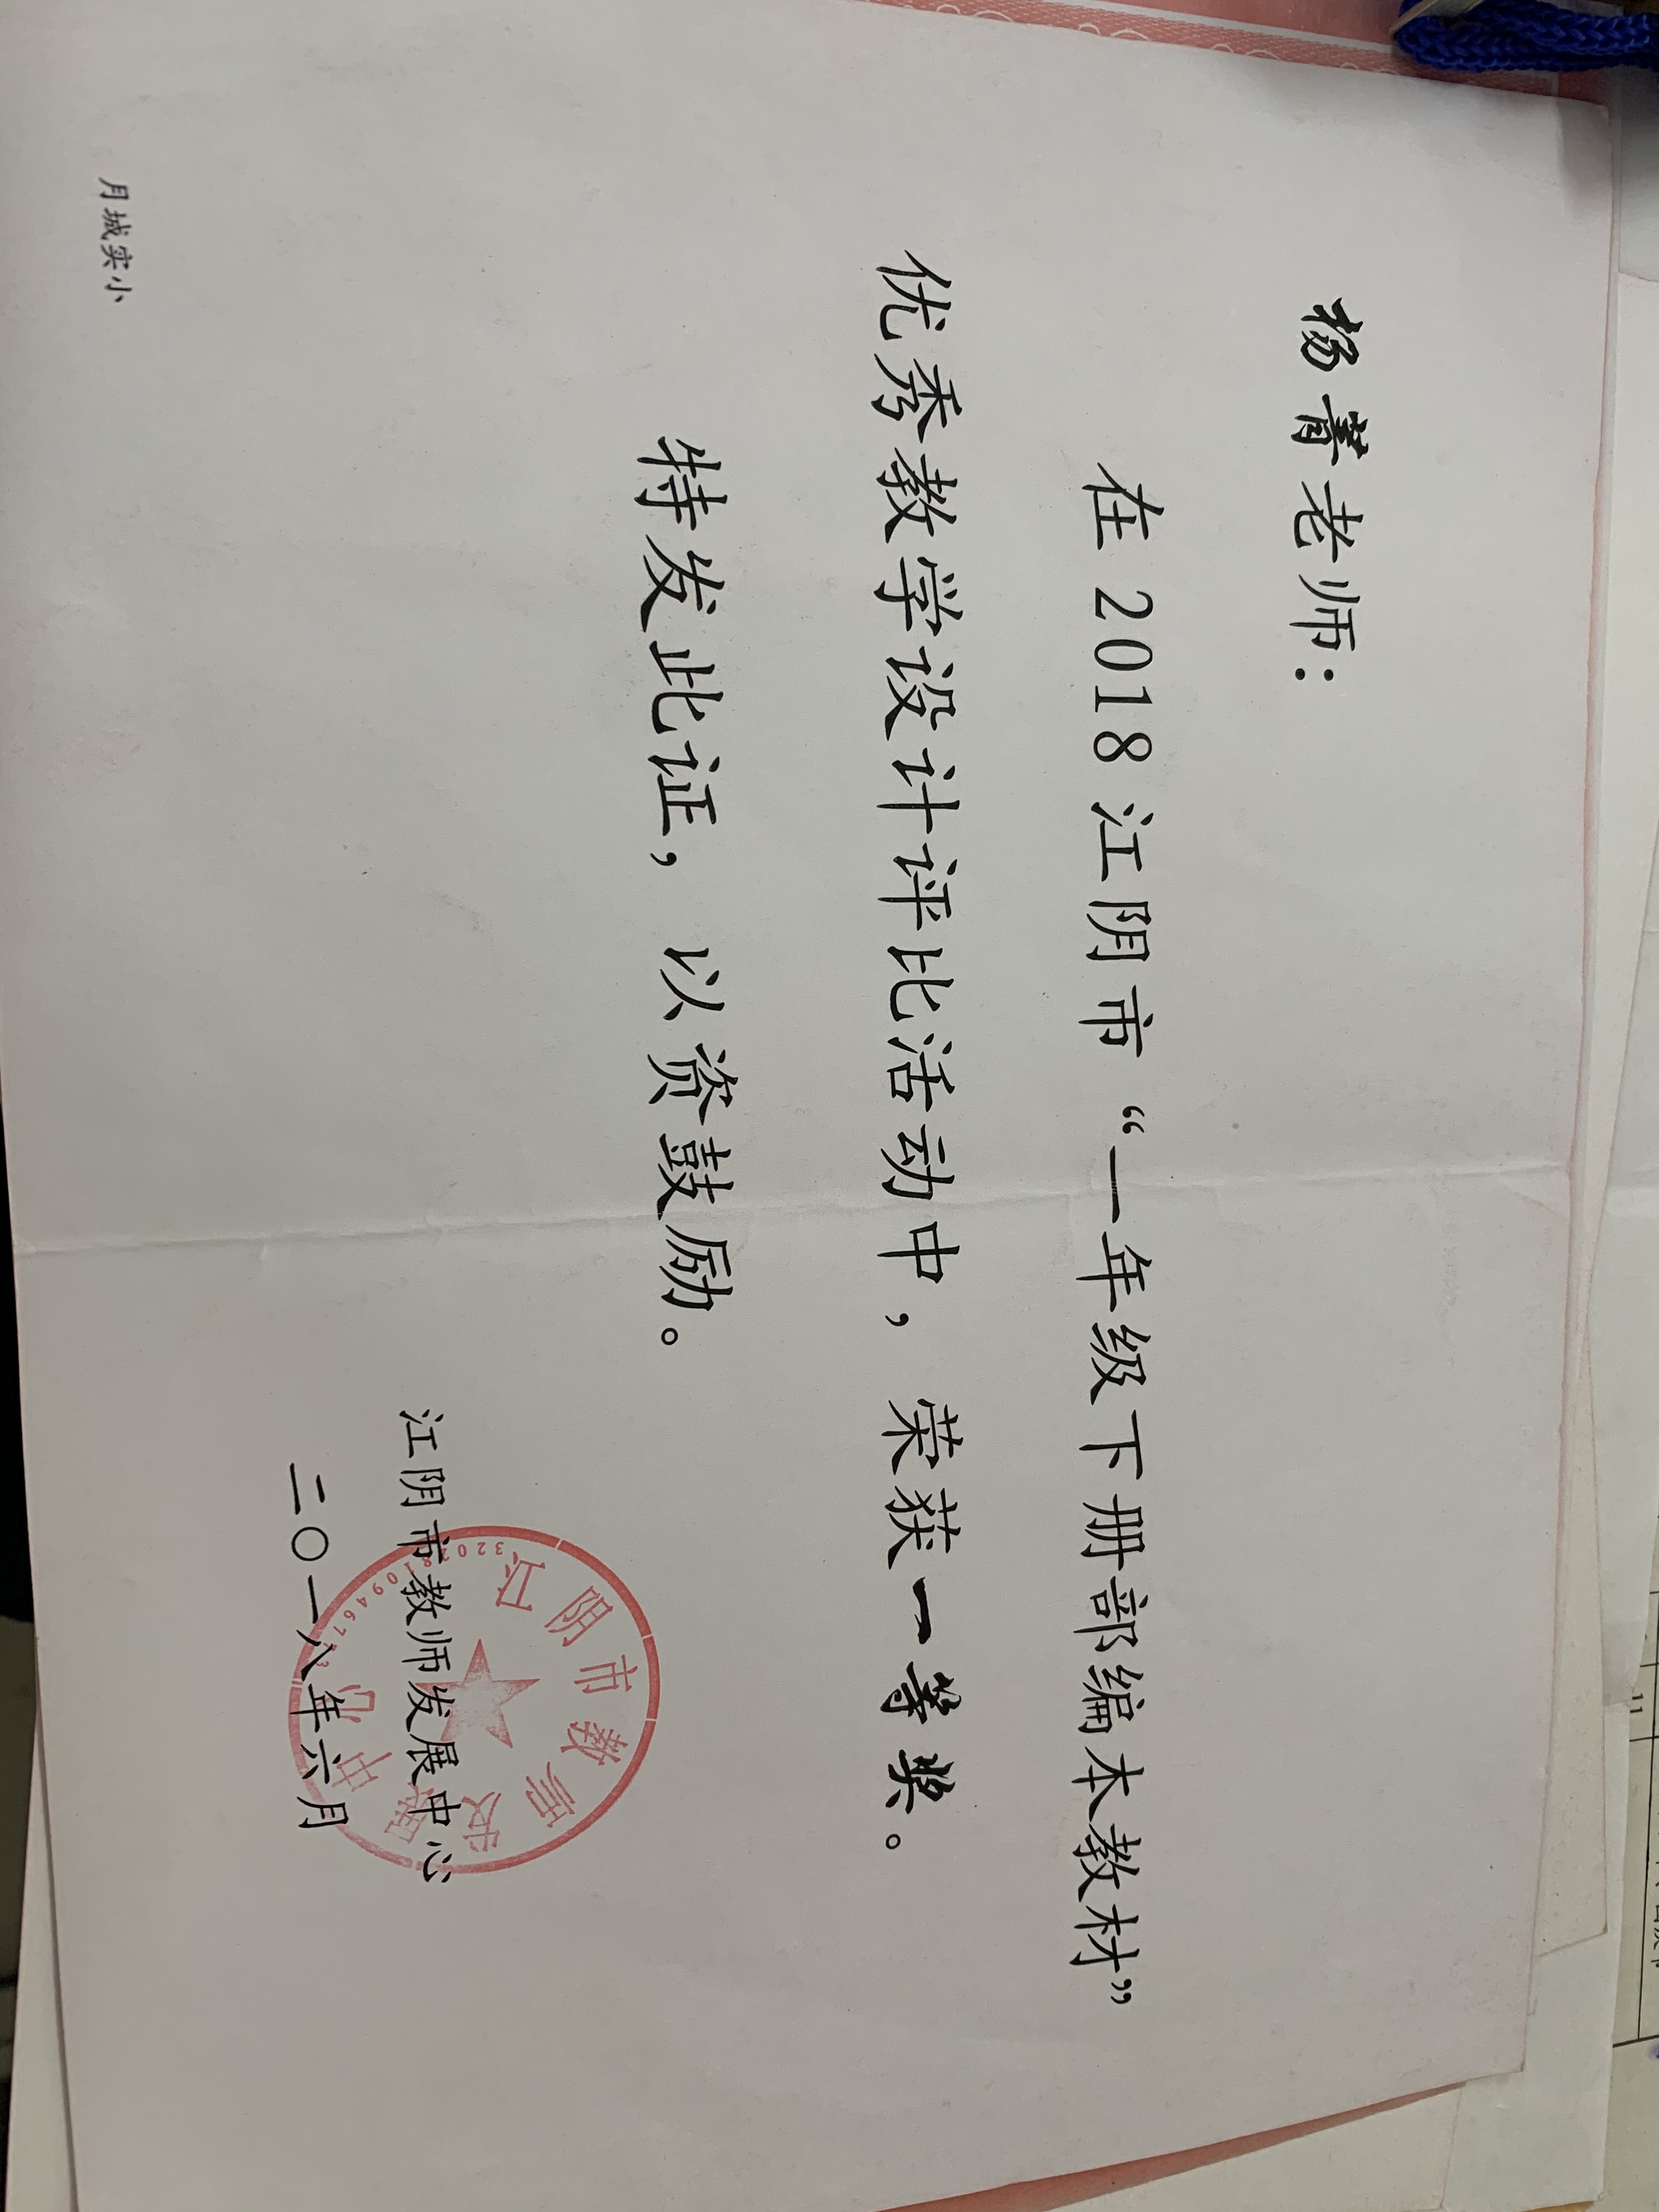 杨菁老师：
在2018江阴市“一年级下册部编本教材”
优秀教学设计评比活动中，荣获一等奖。
特发此证，以资鼓励。
江阴市教师发展中心
二〇一八年六月
月城实小
江阴市教师发展中心